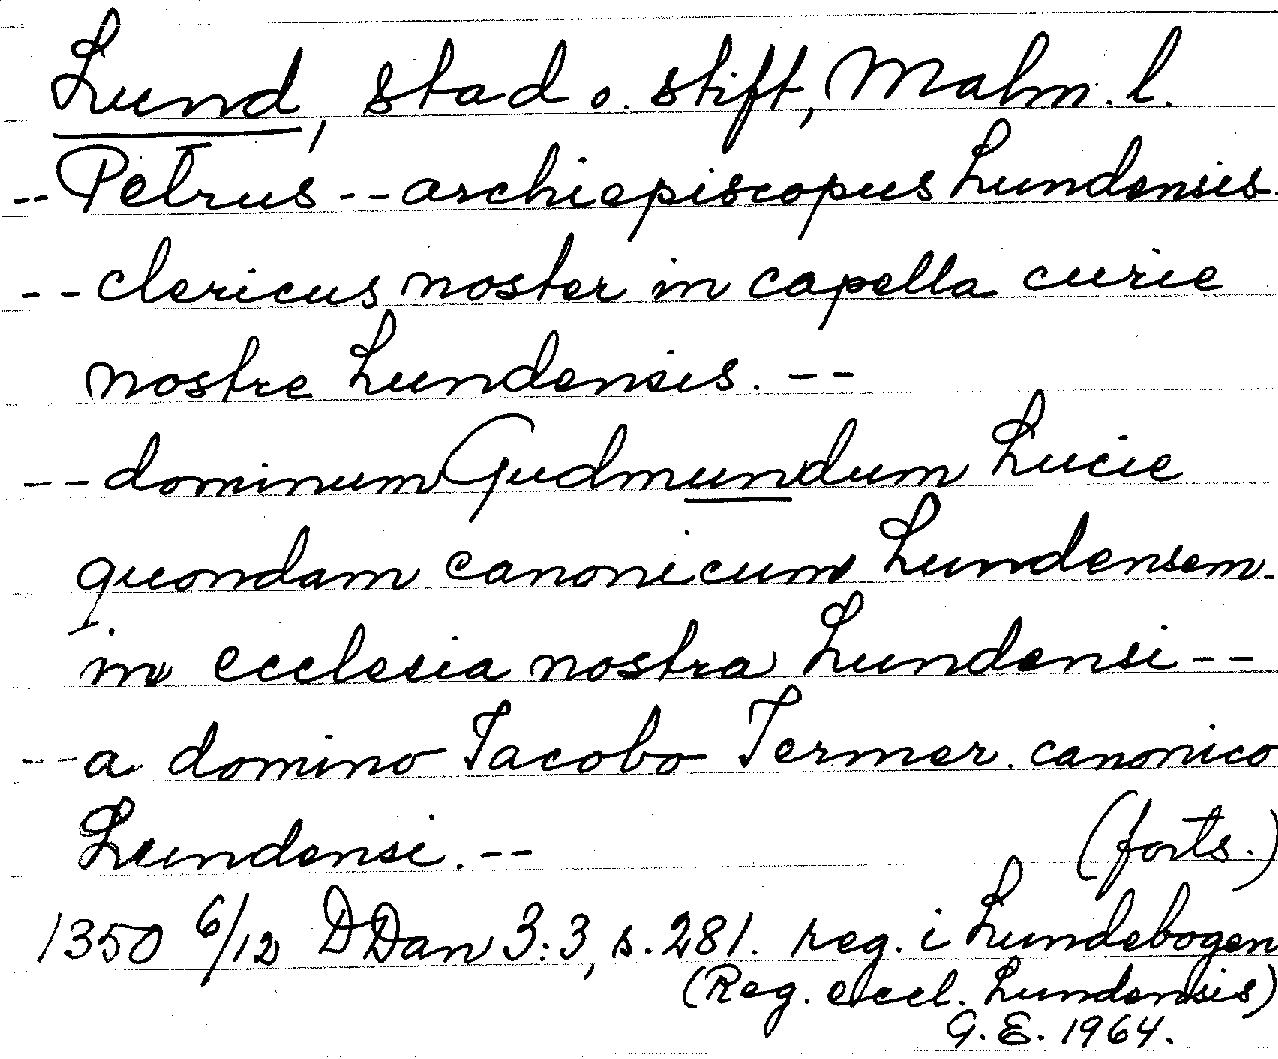 Lund, stad o. stift, Malm. l.
-- Petrus -- archiepiscopus Lundensis.
-- clericus noster in capella curie
nostre Lundensis. --
-- dominum Gudmundum Lucie
quondam canonicum Lundensem
in ecclesia nostra Lundensi --
-- a domino Iacobo Termer. canonico
Lundensi. -- (forts.)
1350 6/12 DDan 3:3, s. 281. reg. i Lundebogen
(Reg. eccl. Lundensis)
G. E. 1964.